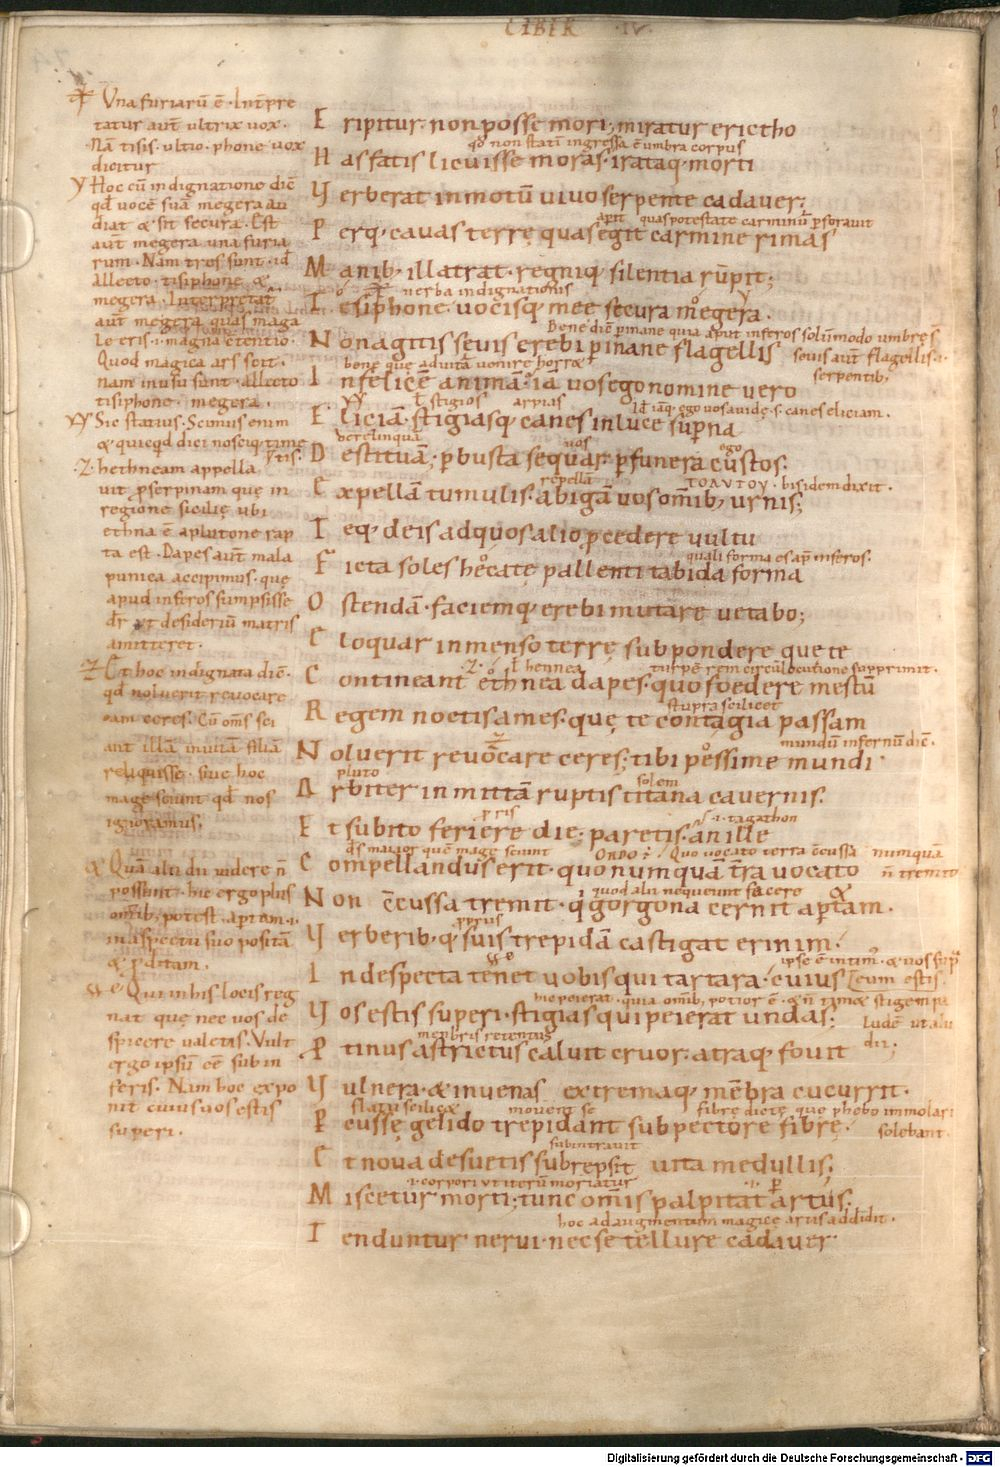 LIBER · IV ·
Una furiarū ē · Int̄pre
tatur aut̄ ultrix uox ·
Nā tisis · ultio · phone uox
dicitur
Hoc cū indignatione diĉ
qd̄ uocē suā megera au
diat & sit secura · Est
aut̄ megera una furia
rum · Nam tres sunt · id̄
allecto · tisiphone · &
megera · Interpretat̄
aut̄ megera quasi maga
le eris · i · magna c̄tentio ·
Quod magica ars scit ·
nam in usu sunt · allecto
tisiphone · megera ·
Sic statius · Scimus enim
& quicqd dici noscıq; time
tis ·
hethneam appella
uit p̄serpinam quę in
regione sicilię ubi
ethna ē a plutone rap
ta est · Dapes aut̄ mala
punica accipimus · quę
apud inferos sumpsisse
dr̄ ut desideriū matris
amitteret ·
Et hoc indignata diĉ ·
qd̄ noluerit reuocare
eam ceres · Cū om̄s sci
ant illā inuitā filiā
reliquisse · siue hoc
mage sciunt qd̄ nos
ignoramus ·
Quā alii dii uidere n̄
possunt · hic ergo plus
om̄ib; potest · aptam · i ·
in aspectu suo positā
& p̄ditam ·
Qui in his locis reg
nat quę nec uos de
spicere ualetis · Vult
ergo ipsū eē sub in
feris · Nam hoc expo
nit cuius uos estis
superi ·
E ripitur · non posse mori · miratur erictho
qd̄ non statī ingressa ē umbra corpus
H as fatis licuisse moras · irataq; morti
V erberat inmotū uiuo serpente cadauer ;
aput quas potestate carminū p̄forauit
P erq; cauas terrę quas egit carmine rimas
M anib; illatrat · regniq; silentia rūpit ;
uerba indignationis
T esiphone · uocisq; mee secura megera ·
Bene diĉ p inane quia aput inferos solūmodo umbre s̄
N on agitis seuis erebi p inane flagellis
seuis aut̄ flagellis · i ·
serpentib;
bene quę ad uitā uenire horre&
I nfelicē animā · iā uos ego nomine uero
ł stigios arpias
Id̄ iāq; ego uos auide · s · canes eliciam ·
E liciā · stigiasq; canes in luce sup̄na
derelinquā
uos ego
D estituā ; p busta sequar · p funera custos ·
repella
ΤΟΛΥΤΟΥ · bis idem dixit ·
E xpellā tumulis · abigā uos om̄ib; urnis ;
T eq; deis ad quos alio p̄cedere uultu
quali forma es ap̄ inferos ·
F icta soles hecate pallenti tabida forma
O stendā · faciemq; erebi mutare uetabo ;
E loquar inmenso terrę sub pondere que te
ł hennea
turpē rem circūlocutione supprimit ·
C ontineant ethnea dapes · quo foedere mestū
stupra scilicet
R egem noctis ames · quę te contagia passam
mundū infernū diĉ ·
N oluerit reuocare ceres ; tibi pessime mundi
pluto
solem
A rbiter inmittā ruptis titana cauernis ·
E t subito feriere die · paretis · an ille
· i · tagathon
ds maior quē mage sciunt
ORDO · Quo uocato terra c̄cussa numquā
n̄ tremit
C ompellandus erit · quo numquā t̄ra uocato
quod alii nequeunt facere
N on c̄cussa tremit · q̄ gorgona cernit aptam ·
V erberib; q; suis trepidā castigat erinim ·
ipse ē intim᷒ · & uos sup̄
I ndespecta tenet uobis qui tartara · cuius
Eum estis
hic peierat · quia om̄ib; potior ē ·
V os estis superi · stigias qui peierat undas ;
ludē ut alii
dii ;
membris retentus
P tinus astrictus caluit cruor · atraq; fouit
V ulnera · & in uenas extremaq; mēbra cucurrit ·
flatu scilic&
mouent se
fibre dictę que phebo immolari
solebant
P ercussę gelido trepidant sub pectore fibrę ·
subintrauit
E t noua desuetis subrepsit uita medullis ;
· i · corpori ut iterū moriatur
M iscetur morti ; tunc om̄is palpitat artus ·
hoc ad augmentum magicę artis addidit ·
T enduntur nerui · nec se tellure cadauer
Digitalisierung gefördert durch die Deutsche Forschungsgemeinschaft · DFG